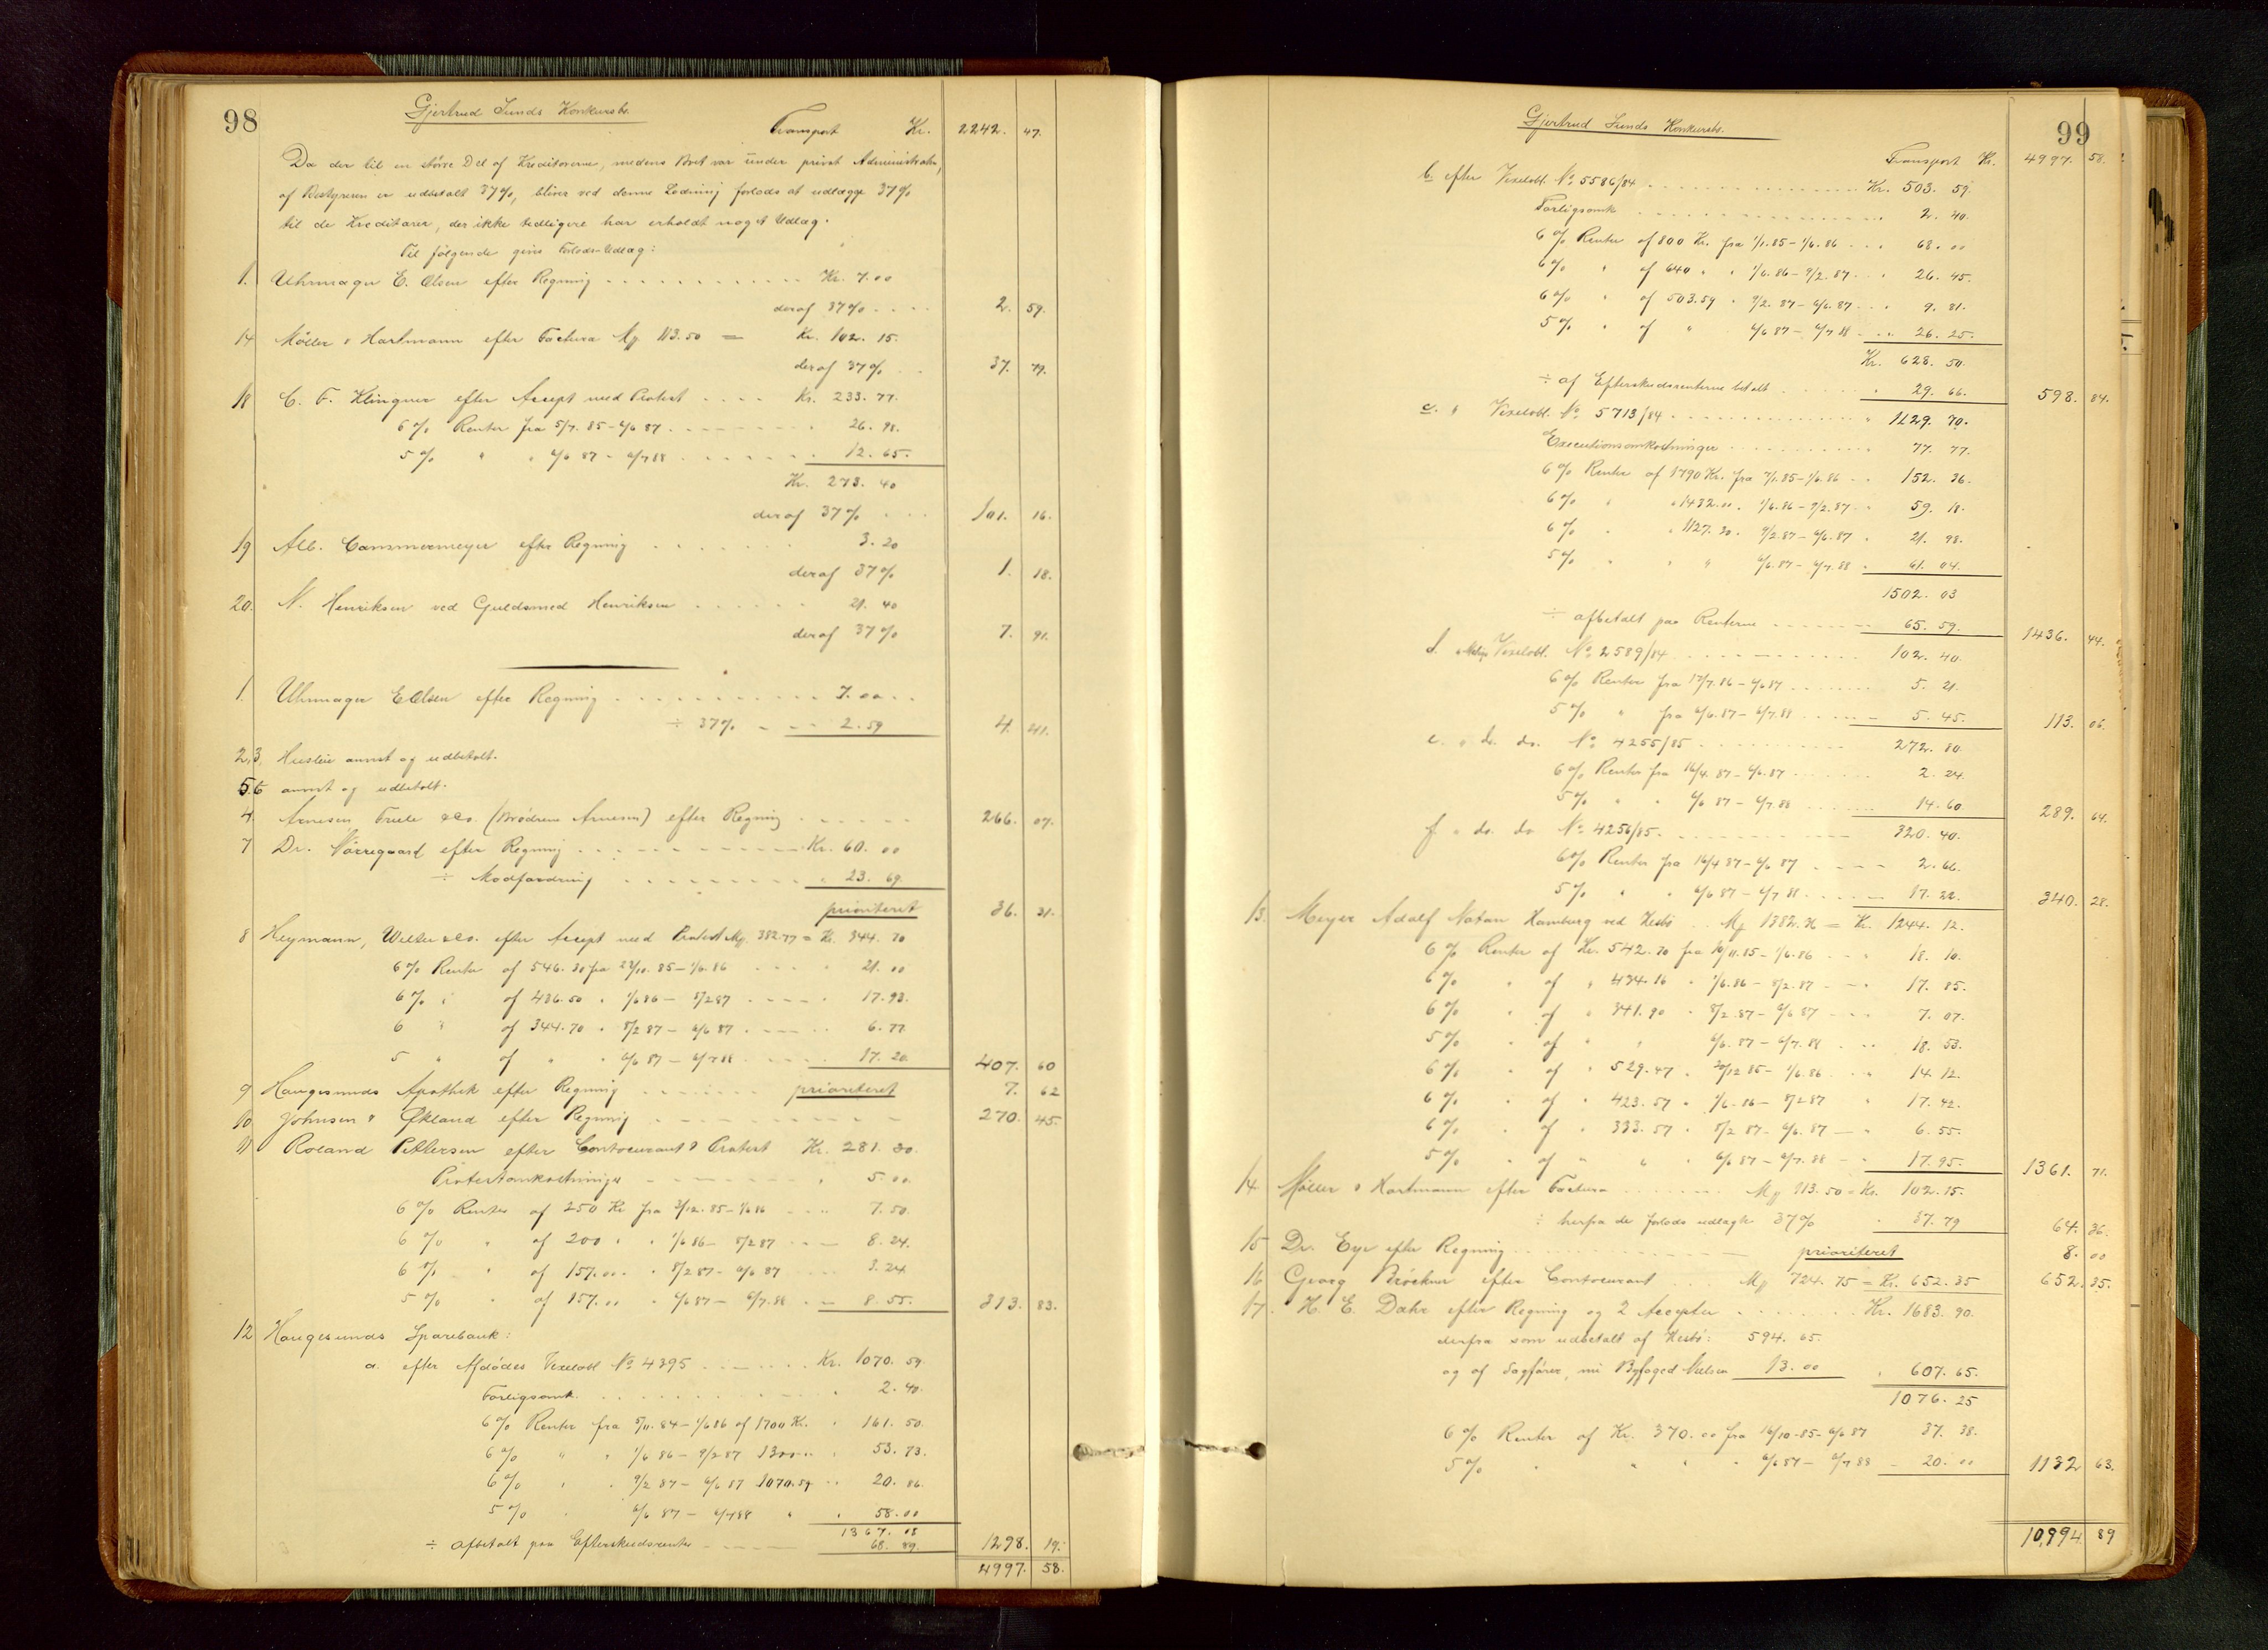 98
Gjertrud Lunds Konkursbo.
Transport Kr. 2242. 47.
Da der til en större Del af Kreditorerne, medens Boet var under privat Administration,
af Bestyreren er udbetalt 37%, bliver ved denne Lodning forlods at udlægge 37%
til de Kreditorer, der ikke tidligere har erholdt noget Udlæg.
Til følgende gives Forlods-Udlæg:
1. Uhrmager E. Olsen efter Regning Kr. 7.00
deraf 37% 2. 59.
14 Møller & Hartmann efter Factura Mk. 113.50 = Kr. 102. 15.
deraf 37% 37. 79.
18 C. F. Klingner efter Accept med Protest Kr. 233. 77.
6% Renter fra 5/7. 85 - 6/6 87 26. 98.
5% " " 6/6 87 - 6/7 88 12. 65.
Kr. 273. 40
deraf 37% 101. 16.
19 Alb. Cammermeyer efter Regning 3. 20
deraf 37% 1. 18.
20. N. Henriksen ved Guldsmed Henriksen 21. 40
deraf 37% 7. 91.
1. Uhrmager E Olsen efter Regning 7.00
÷ 37% 2. 59 4. 41.
2,3, Husleie anvist og udbetalt.
5,6 anvist og udbetalt.
4. Arnesen Truls & Co. (Brødrene Arnesen) efter Regning 266. 07.
7 Dr. Nörregaard efter Regning Kr. 60. 00
÷ Modfordring 23. 69.
prioriteret 36. 31.
8 Heymann, & Co. efter Accept med Protest Mk. 382.77 = Kr. 344. 70
6% Renter af 546. 30 fra 23/10. 85 - 1/6. 86 21. 00
6% " af 436.50 " 1/6 86 - 8/2 87 17. 93.
6 " af 344.70 " 8/2 87 - 6/6 87 6. 77.
5 " af " " 6/6 87 - 6/7 88 17. 20. 407. 60
9 Haugesunds Apothek efter Regning prioriteret 7. 62
10 Johnsen & Økland efter Regning 270. 45.
11 Roland Pettersen efter Contocurant & Protest Kr. 281. 30.
Protestomkostninger " 5. 00.
6% Renter af 250 Kr. fra 2/12. 85 - 1/6 86 7. 50.
6% " af 200 " " 1/6 86 - 8/2 87 8. 24.
6% " af 157.00 " 8/2 87 - 6/6 87 3. 24
5% " af 157.00 " 6/6 87 - 6/7. 88 8. 55. 313. 83.
12 Haugesunds Sparebank:
a. efter Afdødes Vexelobl No 4395 Kr. 1070. 59.
Forligsomk. " 2. 40.
6% Renter fra 5/11. 84 - 1/6 86 af 1700 Kr. " 161. 50.
6% " " 1/6 86 - 9/2 87 1300 " 53. 73.
6% " " 9/2 87 - 6/6 87 1070.59 " 20. 86.
5% " 6/6 87 - 6/7 88 " " 58.00
1367. 08
÷ afbetalt paa Efterskudsrenter 68. 89. 1298. 19.
4997. 58.
99
Gjertrud Lunds Konkursbo.
Transport Kr. 4997. 58.
b. efter Vexelobl. No 5586/84 Kr. 503. 59.
Forligsomk 2. 40.
6% Renter af 800 Kr. fra 1/1. 85 - 1/6. 86 68. 00
6% " af 640 " " 1/6. 86 - 9/2. 87 " 26. 45.
6% " af 503.59 " 9/2. 87 - 6/6. 87 " 9. 81.
5% " af " 6/6 87 - 6/7 88 26. 25.
Kr. 628. 50.
÷ af Efterskudsrenterne betalt " 29. 66. 598. 84.
c. " Vexelobl. No 5713/84 " 1129. 70.
Executionsomkostninger " 77. 77.
6% Renter af 1790 Kr. fra 7/1. 85 - 1/6. 86 152. 36.
6% " " 1432.00. 1/6. 86 - 9/2. 87 59. 18.
6% " " 1127. 30. 9/2. 87 - 6/6. 87 " 21. 98.
5% " " " 6/6. 87 - 6/7. 88 " 61. 04.
1502. 03
÷ afbetalt paa Renterne 65. 59. 1436. 44.
d. Vexelobl. No 2589/84 102. 40.
6% Renter fra 17/7. 86 - 6/6 87 5. 21.
5% " fra 6/6. 87 - 6/7. 88 5. 45. 113. 06.
e. " do. do. No 4255/85 272. 80.
6% Renter fra 16/4. 87 - 6/6. 87 2. 24.
5% " " 6/6 87 - 6/7. 88 14. 60. 289. 64.
f " do. do No 4256/85. 320. 40.
6% Renter fra 16/4 87 - 6/6 87 2. 66.
5% " " 6/6 87 - 6/7 88 17. 22. 340. 28.
13. Meyer Adolf Natan Hamburg ved Mk 1382.36 = Kr. 1244. 12.
6% Renter af Kr. 542. 70 fra 10/11. 85 - 1/6. 86 " 18. 10.
6% " af " 434.16 " 1/6. 86 - 8/2. 87 " 17. 85.
6% " af " 341. 90 " 8/2. 87 - 6/6 87 7. 07.
5% " af " " 6/6. 87 - 6/7. 88 " 18. 53.
6% " af " 529. 47 " 20/12 85 - 1/6. 86 14. 12.
6% " af " 423. 57 " 1/6. 86 - 8/2 87 " 17. 42.
6% " af " 333. 57 " 8/2 87 - 6/6. 87 " 6. 55.
5% " af " " " 6/6 87 - 6/7. 88 " 17. 95. 1361. 71.
14. Møller & Hartmann efter Factura Mk 113. 50 = Kr. 102. 15.
÷ herfra de forlods udlagte 37% " 37. 79 64. 36.
15 Dr. Eyr efter Regning prioriteret 8. 00
16 Georg Bröckner efter Contocurant Mk 724. 75 = Kr. 652. 35 652. 35.
17. H. E. Dahr efter Regning og 2 Accepter Kr. 1683. 90.
derfra som udbetalt af : 594. 65.
og af Sagfører, nu Byfoged Nielsen 13. 00 " 607. 65.
1076. 25
6% Renter af Kr. 370. 00 fra 16/10 - 85 - 6/6 87 37. 38.
5% " " " " 6/6 87 - 6/7 88 20. 00 1132 63.
10,994 89